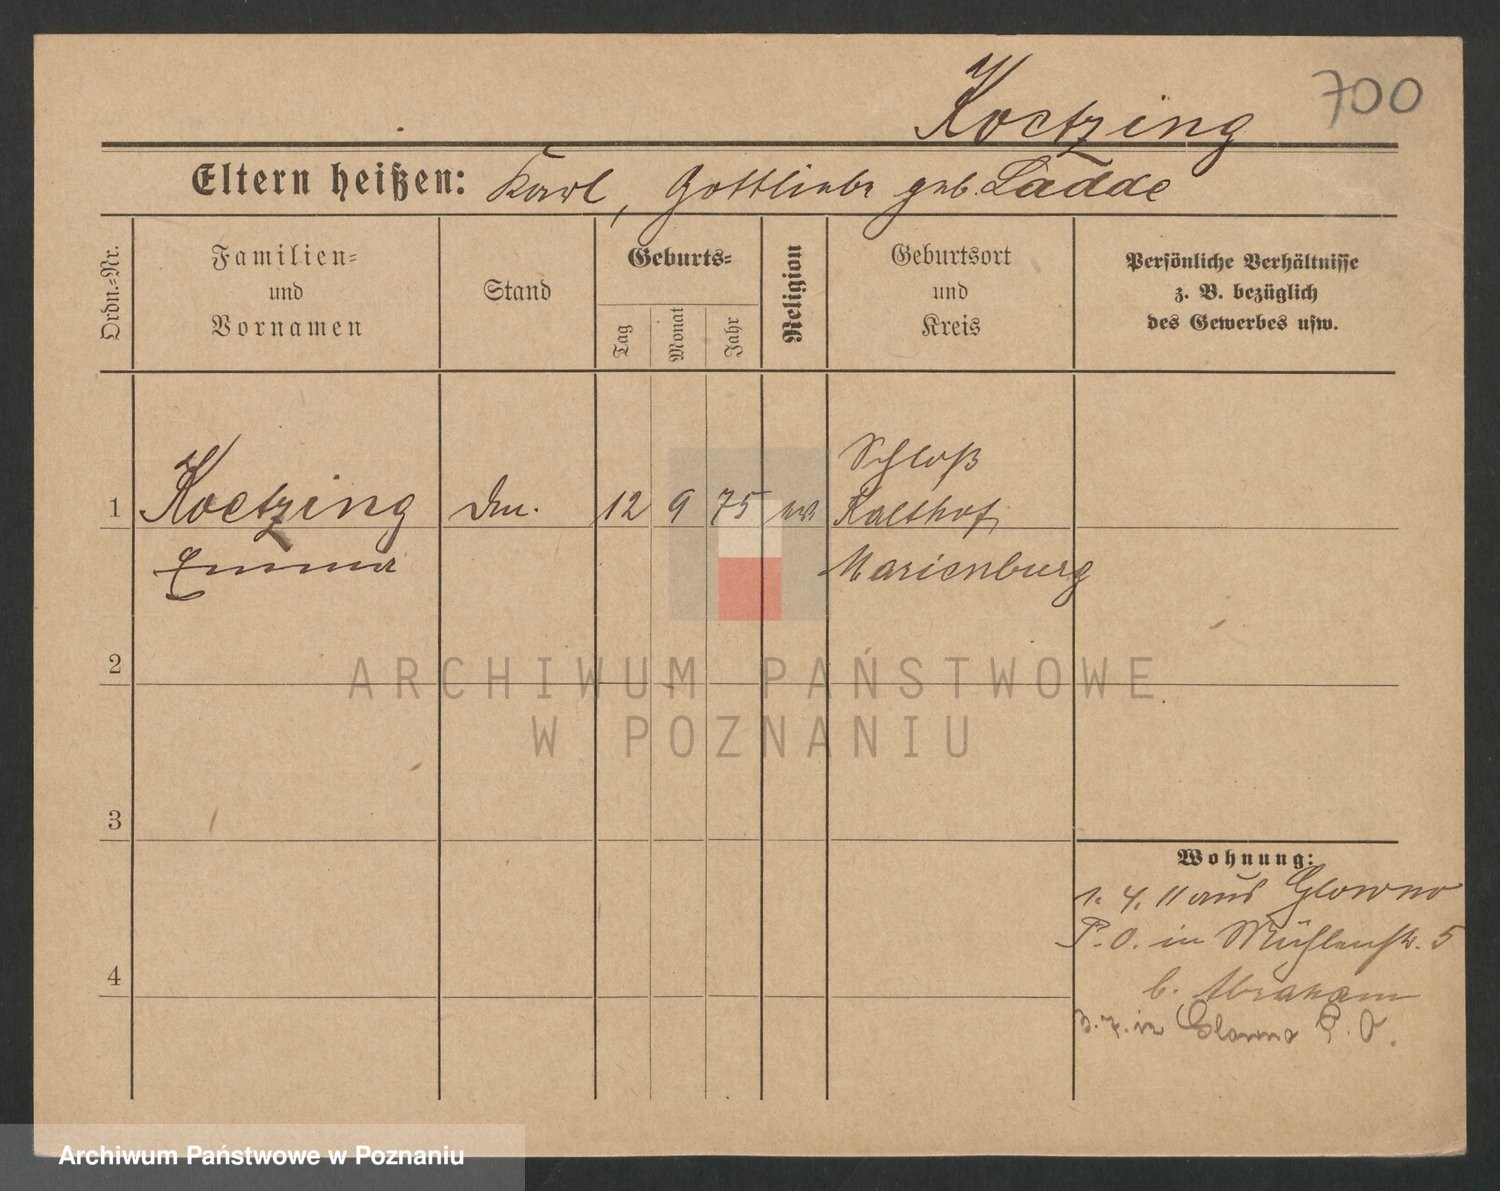 Koetzing 700
Eltern heißen: Karl, Gottliebe geb. Ladde
Ordn.=Nr.
Familien=
und
Vornamen
Stand
Geburts=
Tag
Monat
Jahr
Religion
Geburtsort
und
Kreis
Persönliche Verhältnisse
z. B. bezüglich
des Gewerbes usw.
Schloß
1 Koetzing 12 9 75 Kalthof
Emma Marienburg
2
ARCHIWUM PAŃSTWOWE
W POZNANIU
3
Wohnung:
1. 4. 11 aus Glowno
P. O. in Mühlenstr. 5
4
b. Abraham
3. 7. in Glowno P. O.
Archiwum Państwowe w Poznaniu